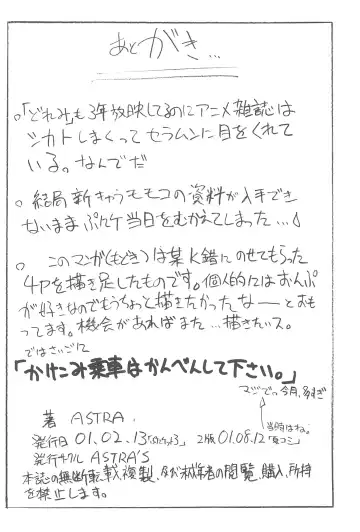 あとがき…
○「どれみ」も3年放映してるのにアニメ雑誌は
シカトしまくってセラムンに目をくれて
いる。なんでだ
○ 結局新キャラモモコの資料が入手でき
ないままぷにケ当日をむかえてしまった…♪
○ このマンガ(もどき)は某K錯にのせてもらった
4Pを描き足したものです。個人的にはおんぷ
が好きなのでもうちょっと描きたかったなーとおも
ってます。機会があればまた…描きたいス。
ではさいごに
「かけこみ乗車はかんべんして下さい。」
マジでっ今月、多すぎ
当時はね。
著 ASTRA.
発行日 01.02.13 2版 01.08.12「夏コミ」
発行サークル ASTRA'S
本誌の無断転載、複製、及び未成年者の閲覧、購入、所持
を禁止します。